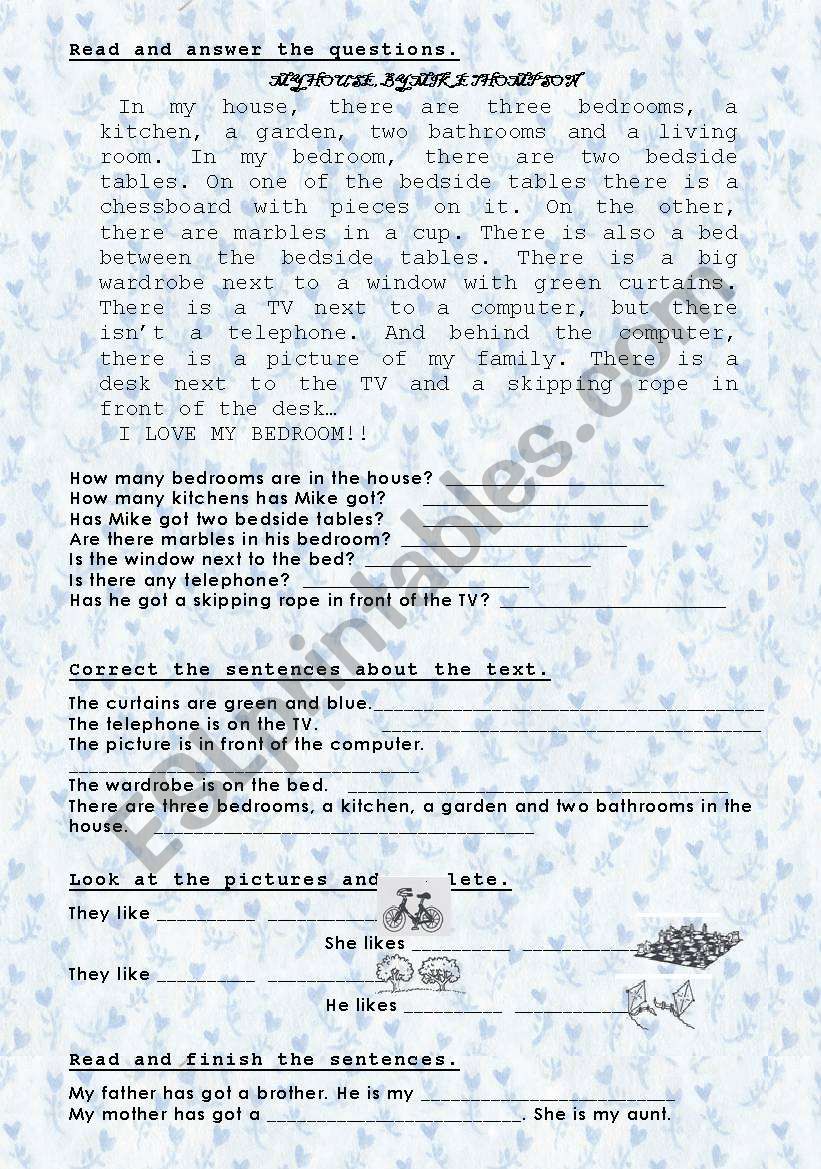 Read and answer the questions.
MY HOUSE, BY MIKE THOMPSON
In my house, there are three bedrooms, a
kitchen, a garden, two bathrooms and a living
room. In my bedroom, there are two bedside
tables. On one of the bedside tables there is a
chessboard with pieces on it. On the other,
there are marbles in a cup. There is also a bed
between the bedside tables. There is a big
wardrobe next to a window with green curtains.
There is a TV next to a computer, but there
isn't a telephone. And behind the computer,
there is a picture of my family. There is a
desk next to the TV and a skipping rope in
front of the desk…
I LOVE MY BEDROOM!!
How many bedrooms are in the house? ______________________
How many kitchens has Mike got? ______________________
Has Mike got two bedside tables? ______________________
Are there marbles in his bedroom? ______________________
Is the window next to the bed? ______________________
Is there any telephone? ______________________
Has he got a skipping rope in front of the TV? ______________________
Correct the sentences about the text.
The curtains are green and blue.______________________________________
The telephone is on the TV. ______________________________________
The picture is in front of the computer.
___________________________________
The wardrobe is on the bed. ______________________________________
There are three bedrooms, a kitchen, a garden and two bathrooms in the
house. ______________________________________
Look at the pictures and lete.
They like __________ ___________
She likes __________ ___________
They like __________ ___________
He likes __________ ___________
Read and finish the sentences.
My father has got a brother. He is my _________________________
My mother has got a _________________________. She is my aunt.
ESLprintables.com